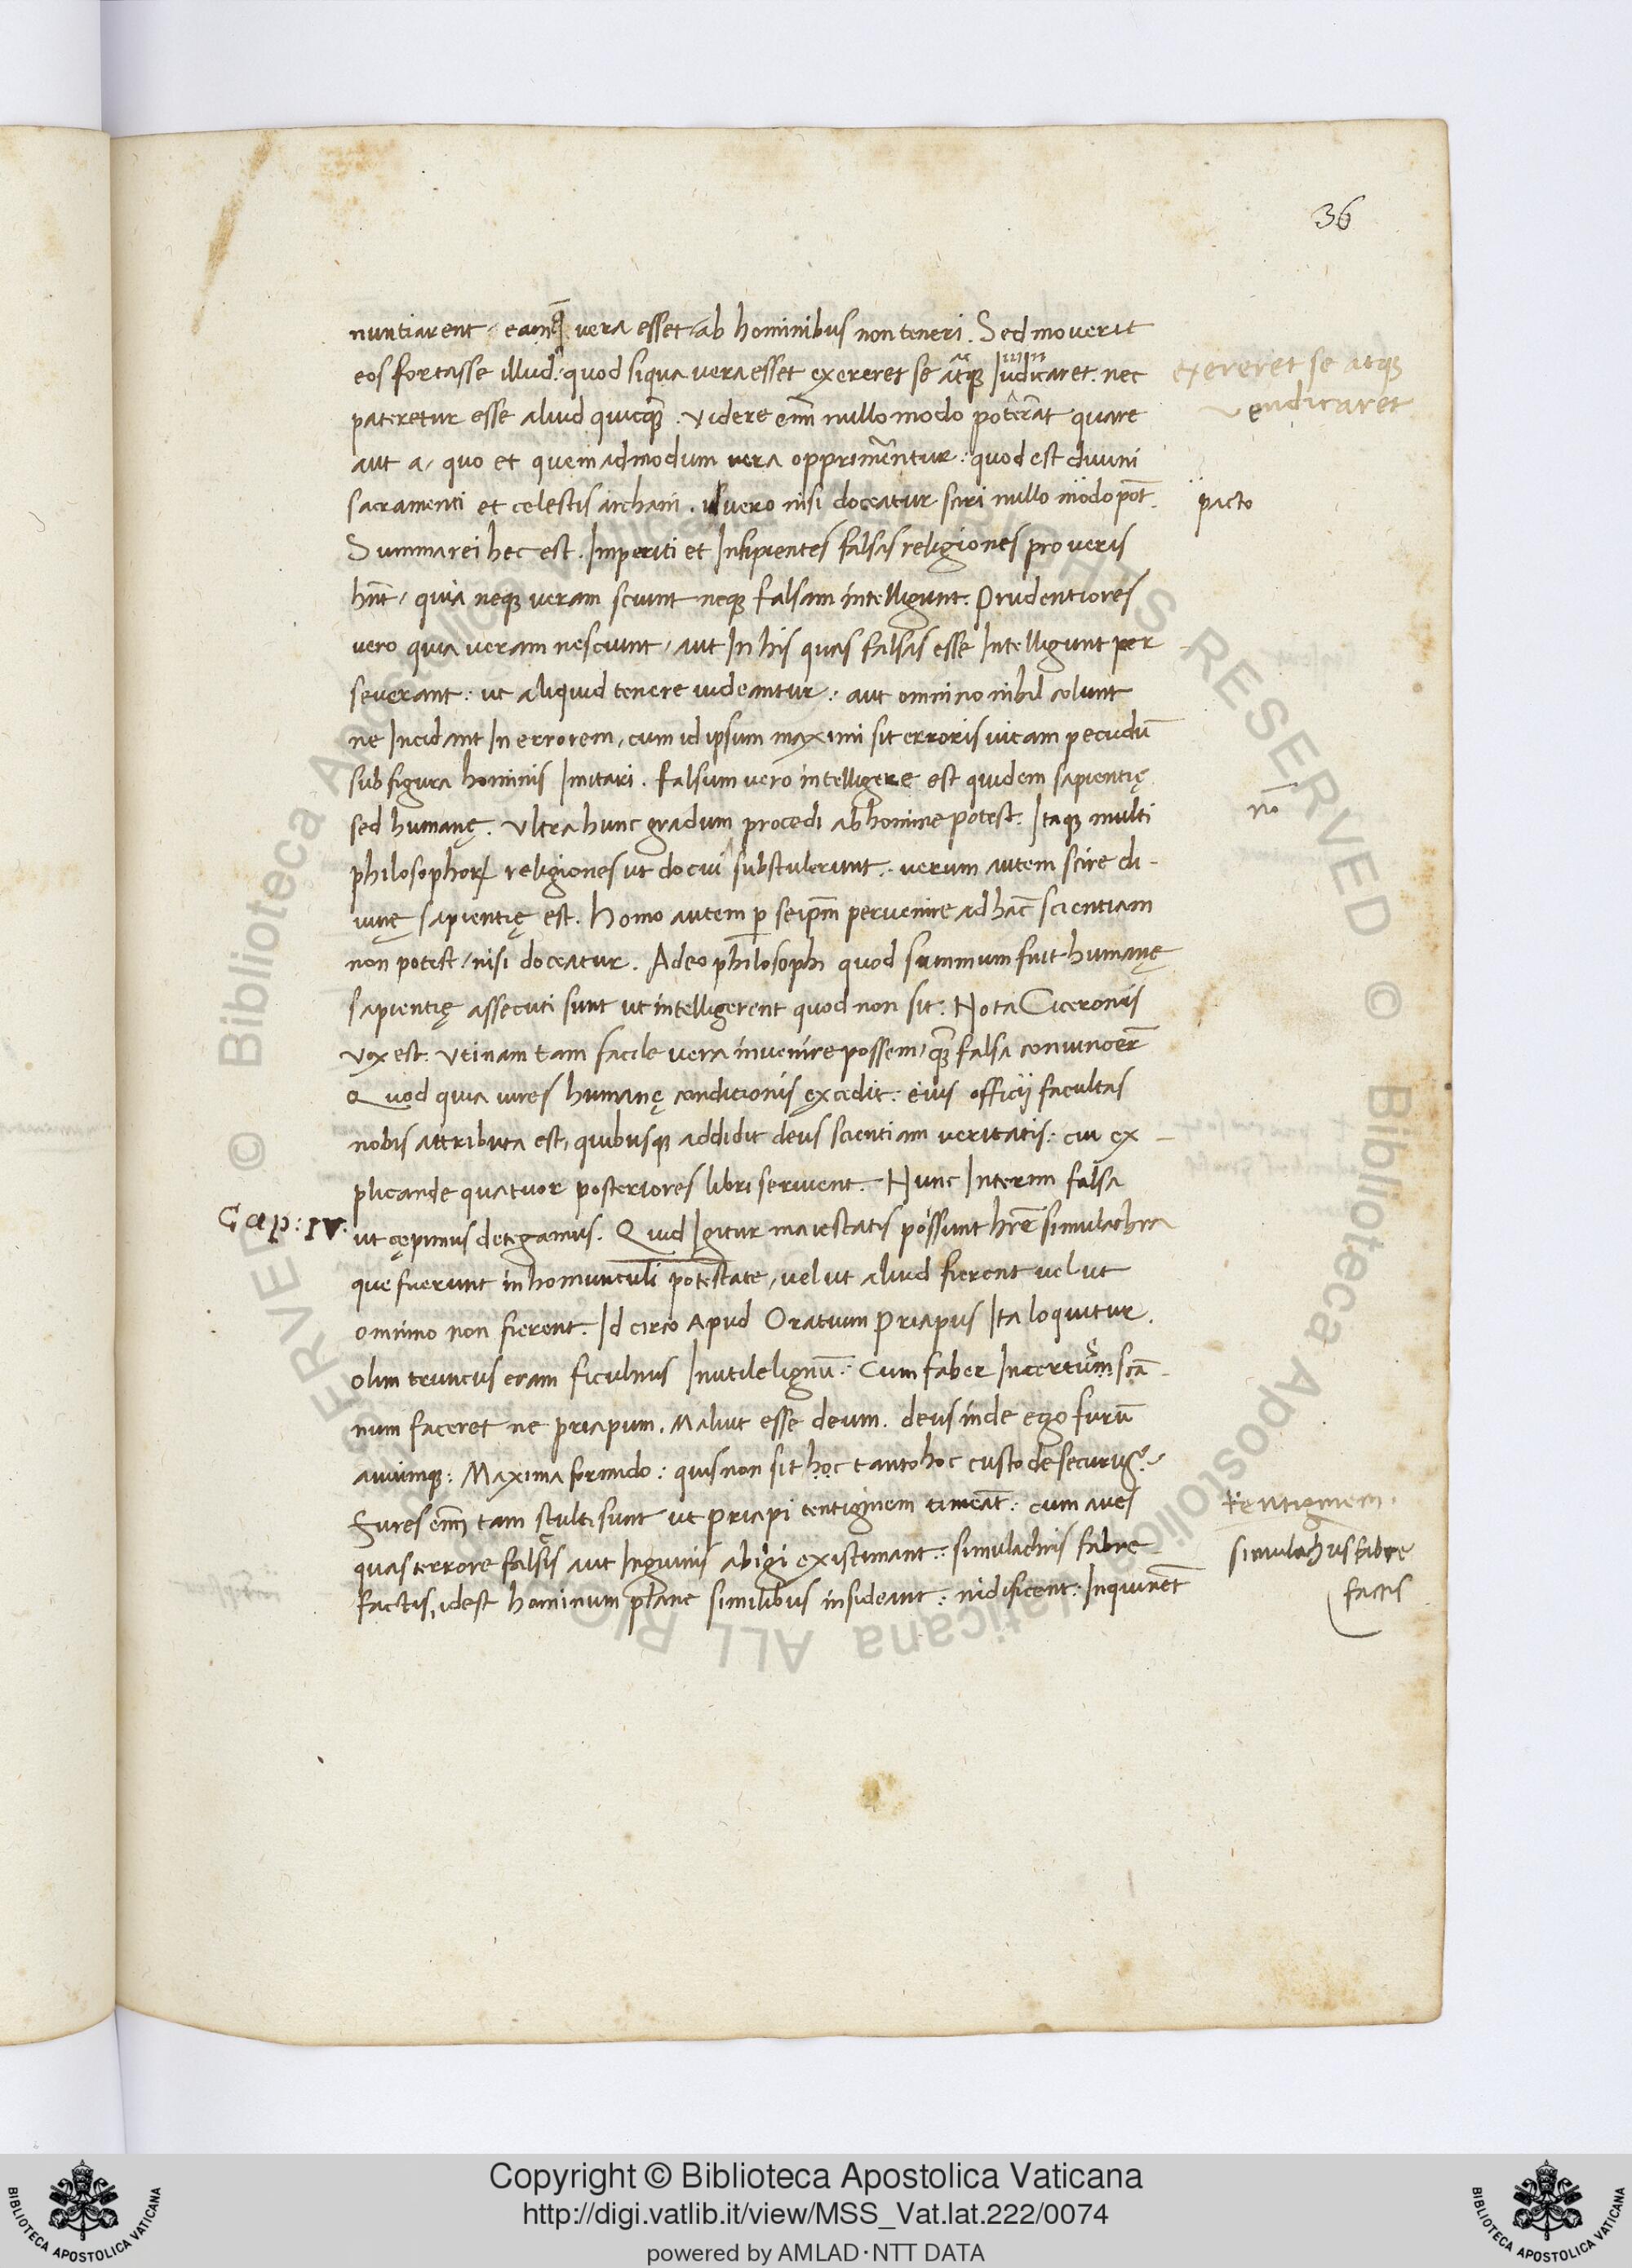 36
nuntiarent, eamq̄ vera esset, ab hominibus non teneri. Sed moverit
eos fortasse illud: quod siqua vera esset exereret se atque Iudicaret. nec
exereret se atque
vendicaret
pateretur esse aliud quicq̄. videre eni͞m nullo modo poterant quare
aut a, quo et quemadmodum vera opprimerentur: quod est divini
sacramenti et celestis archani. vero nisi doceatur sciri nullo modo pōt.
pacto
Summa rei hec est. Imperiti et Insipientes falsas religiones pro veris
hn͞t, quia neque veram sciunt neque falsam intelligunt. Prudentiores
vero quia veram nesciunt, aut In his quas falsas esse Intelligunt per
severant: ut aliquid tenere videantur: aut omnino nihil colunt
ne Incidant In errorem, cum id ipsum maximi sit erroris vitam pecudū
sub figura hominis Imitari. falsum vero intelligere est quidem sapientię
sed humanę. Ultra hunc gradum procedi ab homine potest. Itaque multi
nō
philosophoꝝ religiones ut docui substulerunt. verum autem scire di-
vinę sapientię est. Homo autem p seip͞m pervenire ad hāc scientiam
non potest, nisi doceatur. Adeo philosophi quod summum fuit humanę
sapientię assecuti sunt ut intelligerent quod non sit: Nota Ciceronis
vox est. Utinam tam facile vera invenire possem, q̄ falsa convincer̄
Quod quia vires humanę conditionis excedit: eius officij facultas
nobis attributa est, quibusque addidit deus scientiam veritatis: cui ex-
plicande quatuor posteriores libri servient. Nunc Interim falsa
Cap: IV.
ut cępimus detegamus. Quid Igitur maiestatis possunt hr̄e simulachra
que fuerunt in homunculi potestate, vel ut aliud fierent vel ut
omnino non fierent. Id circo apud Oratium Priapus Ita loquitur.
olim truncus eram ficulnus Inutile lignū: Cum faber Incertum scā-
num faceret ne priapum. Maluit esse deum. deus inde ego furū
aviumque: Maxima formido: quis non sit hoc tanto hoc custode securus?
Fures eni͞m tam stulti sunt ut Priapi tentiginem timeāt: cum aves
tentiginem.
quas terrore falsis aut Inguinis abigi existimant: simulachris fabre
simulachris fabre
factis
factis, idest hominum plane similibus insideant: nidificent: Inquinēt
Copyright © Biblioteca Apostolica Vaticana
http://digi.vatlib.it/view/MSS_Vat.lat.222/0074
powered by AMLAD·NTT DATA
BIBLIOTECA APOSTOLICA VATICANA
BIBLIOTECA APOSTOLICA VATICANA
© Biblioteca Apostolica Vaticana ALL RIGHTS RESERVED © Biblioteca Apostolica Vaticana ALL RIGHTS RESERVED